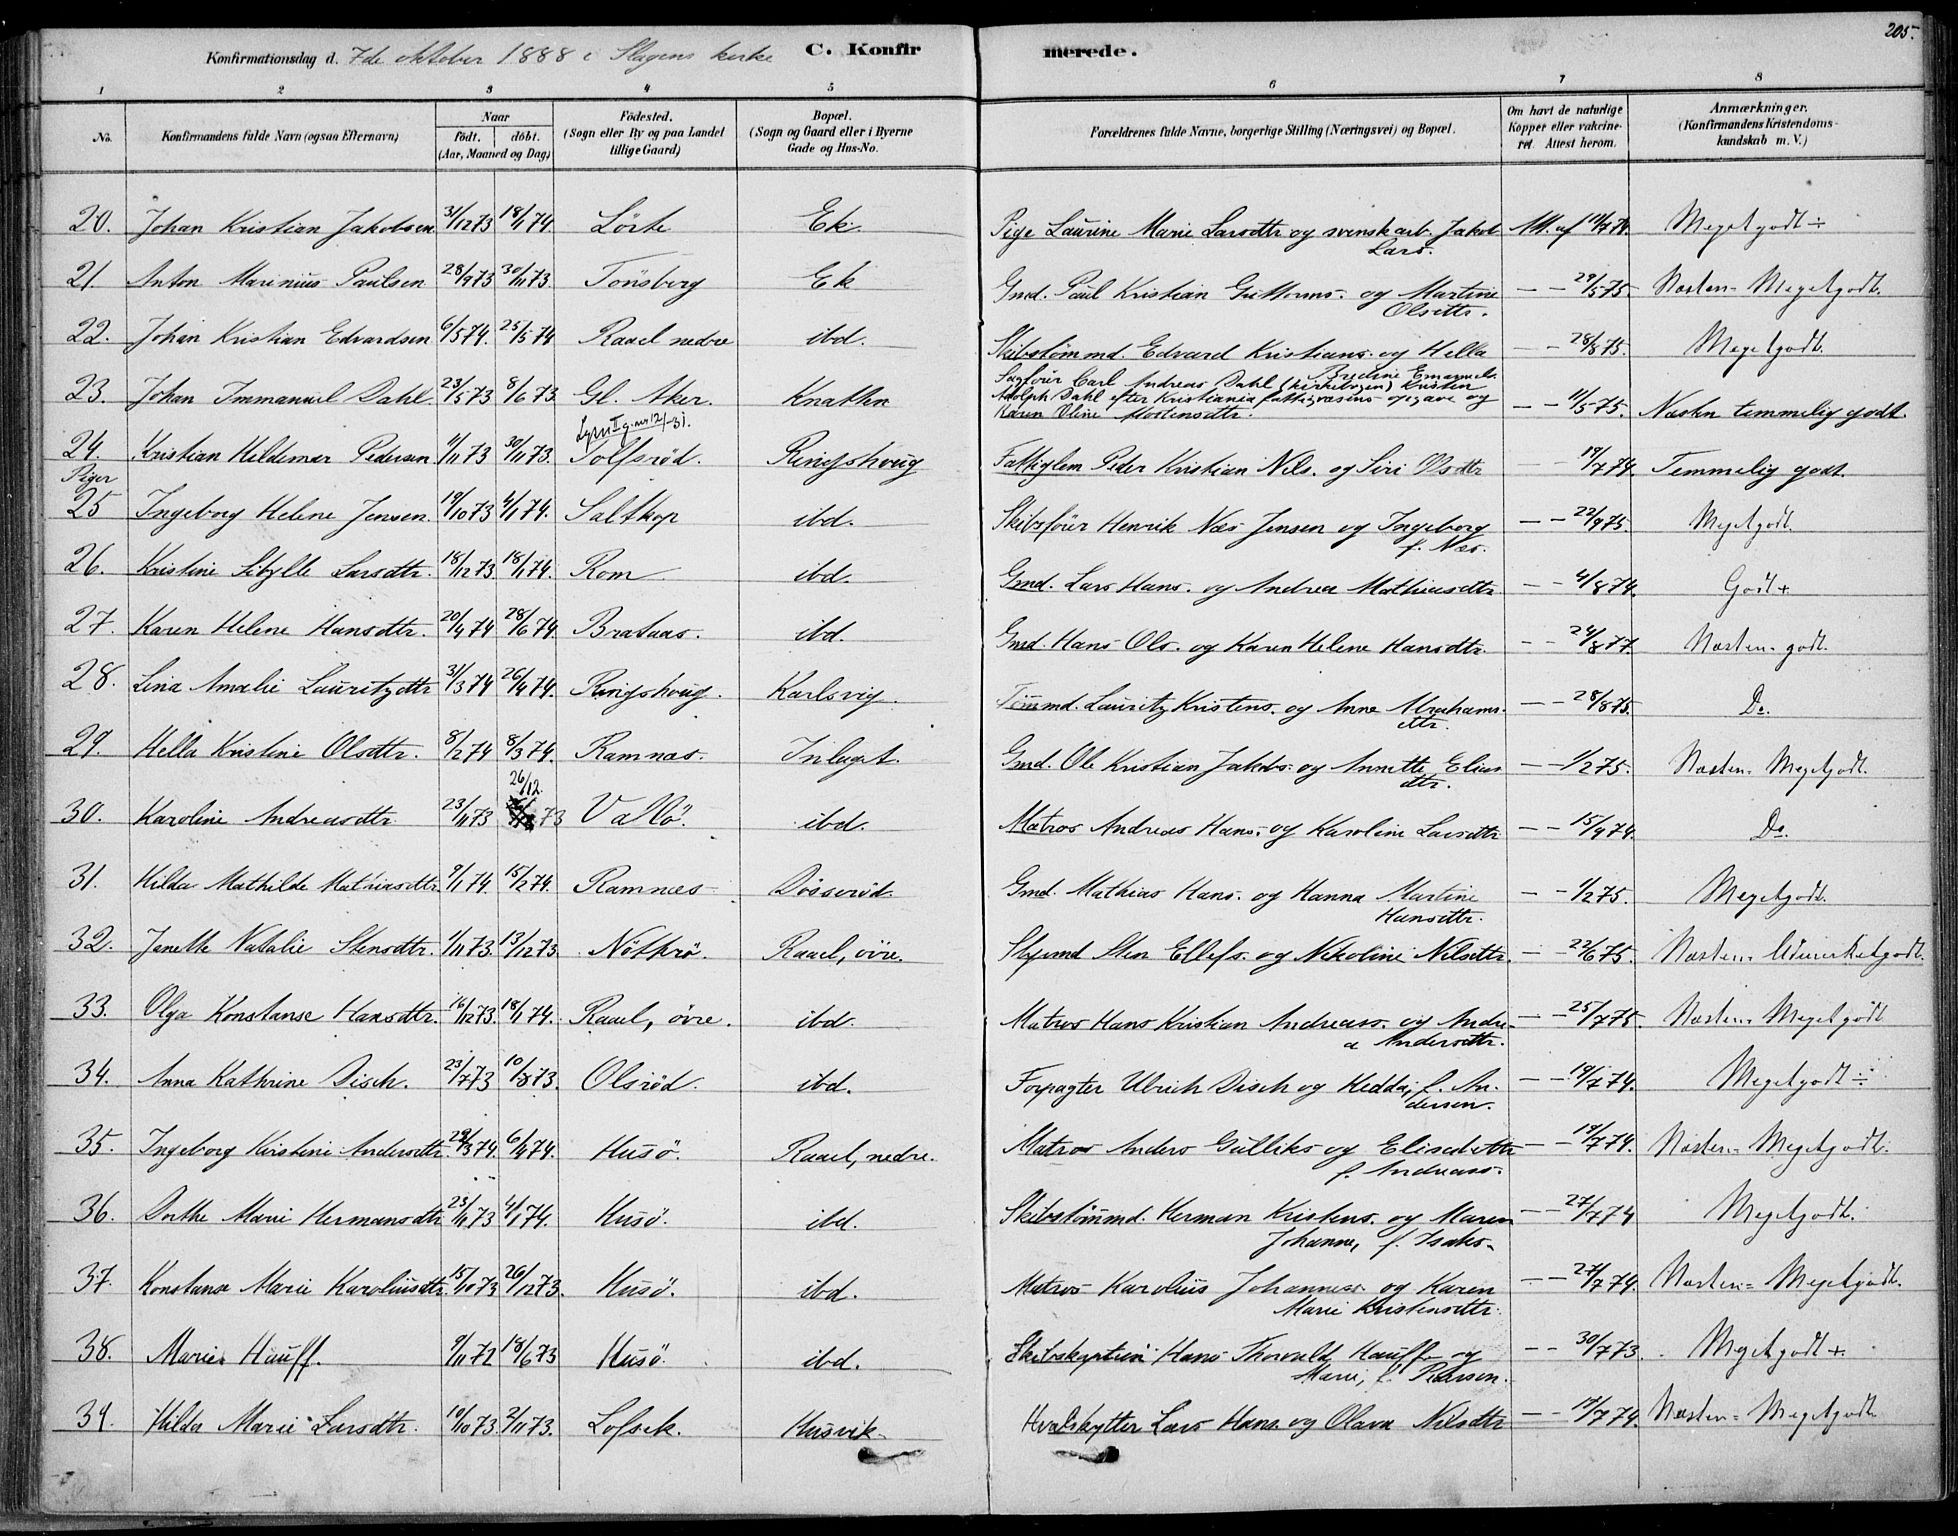 205.
Konfirmationsdag d. 7de oktober 1888 i Slagens kirke C. Konfirmerede.
1 2 3 4 5 6 7 8
No. Konfirmandens fulde Navn (ogsaa Efternavn) Naar födt. döbt. (Aar, Maaned og Dag) Födested. (Sogn eller By og paa Landet tillige Gaard) Bopæl. (Sogn og Gaard eller i Byerne Gade og Hus-No. Forældrenes fulde Navne, borgerlige Stilling (Næringsvei) og Bopæl. Om havt de naturlige Kopper eller vakcineret. Attest herom. Anmærkninger. (Konfirmandens Kristendomskundskab m. V.)
20. Johan Kristian Jakobsen 31/12 73 18/1 74. Ek. Pige Laurine Marie Larsdtr og svensk arb. Jakob Lars. Meget godt ÷
21 Anton Marinius Paulsen 28/9 73 30/11 73. Tönsberg Ek Gmd. Paul Kristian Guttorms. og Martine Olsdtr. — — 29/5 75. Næsten = Meget godt.
22. Johan Kristian Edvardsen 6/5 74. 25/5 74 Raael nedre ibd. Skibstömmd. Edvard Kristians. og Hella Bredine Emanuels. — — 28/8 75. Meget godt.
23. Johan Immanuel Dahl 23/5 73 8/6 73. Gl. Aker. Knatten Sagförer Carl Andreas Dahl (kirkebogen) Kristen Adolph Dahl efter Kristiania fattigvæsens opgave og Karen Oline Mortensdtr. — — 11/5 75. Næsten temmelig godt.
24. Kristian Hildemar Pedersen 11/11 73 30/11 73. Tolfsröd. Ringshoug Fattiglem Peder Kristian Nils. og Siri Olsdtr — — 19/7 74. Temmelig godt.
Piger
25 Ingeborg Helene Jensen. 19/10 73 4/1 74. Saltkop ibd. Skibsförer Henrik Næs Jensen og Ingeborg f. Næs. — — 22/9 75. Meget godt.
26. Kristine Sibylle Larsdtr. 18/12 73 18/1 74. Rom ibd. Gmd. Lars Hans. og Andrea Mathiasdtr — — 4/8 74. Godt +
27. Karen Helene Hansdtr. 20/4 74 28/6 74. Brataas. ibd. Gmd. Hans Ols. og Karen Helene Hansdtr. — — 24/8 77. Næsten = godt.
28. Lina Amalie Lauritzdtr 31/3 74 26/4 74. Ringshoug. Karlsvig. Tömmd. Lauritz Kristens. og Anne Abrahamsdtr. — — 28/8 75. Do.
29. Hella Kristine Olsdtr. 8/2 74 8/3 74. Ramnæs. Inlaget. Gmd. Ole Kristian Jakobs. og Annette Eliasdtr. — — 1/2 75. Næsten = Meget godt.
30. Karoline Andreasdtr 23/11 73 26/12. 73 Vallö. ibd. Matros Andreas Hans. og Karoline Larsdtr — — 15/9 74. Do.
31. Hilda Mathilde Mathiasdtr. 9/1 74. 15/2 74. Ramnæs Dösseröd. Gmd. Mathias Hans. og Hanna Martine Hansdtr. — — 1/2 75. Meget godt.
32. Janette Natalie Stensdtr. 1/11 73. 13/12 73. Nötterö. Raael, övre. Skydsmd Sten Ellefs. og Nikoline Nilsdtr. — — 22/6 75. Næsten = Udmerket godt.
33. Olga Konstanse Hansdtr. 16/12 73. 18/1 74. Raael, övre. ibd. Matros Hans Kristian Andreass. og Andrea Andersdtr. — — 25/7 75. Næsten = Meget godt
34. Anna Kathrine Disch. 23/7 73 10/8 73. Olsröd. ibd. Forpagter Ulrich Disch og Hedda, f. Andersen. — — 19/7 74. Meget godt ÷
35. Ingeborg Kirstine Andersdtr. 28/3 74. 6/4 74. Husö. Raael, nedre. Matros Anders Gulliks. og Elisabeth f. Andreass. — — 19/7 74. Næsten = Meget godt.
36. Dorthe Marie Hermansdtr 23/11 73 4/1 74. Husö. ibd. Skibstömmd. Herman Kristens. og Maren Johanne, f. Isaks. — — 27/7 74 Meget godt.
37. Konstanse Marie Karoliusdtr. 15/10 73 26/12 73. Husö. ibd. Matros Karolius Johanness. og Karen Marie Kristensdtr. — — 27/7 74. Næsten = Meget godt.
38. Marie Hauff. 9/11 72 18/6 73 Husö. ibd. Skibskaptein Hans Thorvald Hauff og Marie, f. Pedersen. — — 30/7 73. Meget godt +
39. Hilda Marie Larsdtr. 10/10 73. 2/11 73. Lofsek. Husvik. Hvalskytter Lars Hans. og Olava Nilsdtr — — 19/7 74. Næsten = Meget godt.